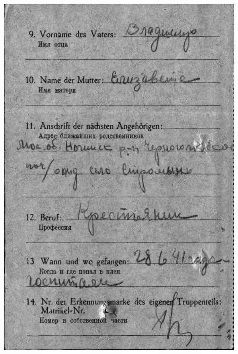 9. Vorname des Vaters: Владимир
Имя отца
10. Name der Mutter: Елизавета
Имя матери
11. Anschrift der nächsten Angehörigen:
Адрес ближайших родственников
Мос. об. Ногинск р-н Черноголовской
пог/ село Стромынь
12. Beruf: Крестьянин
Профессия
13 Wann und wo gefangen: 28.6.41 года
Когда и где попал в плен
госпитале
14. Nr. der Erkennungsmarke des eigenen Truppenteils:
Matrikel-Nr.
Номер в собственной части